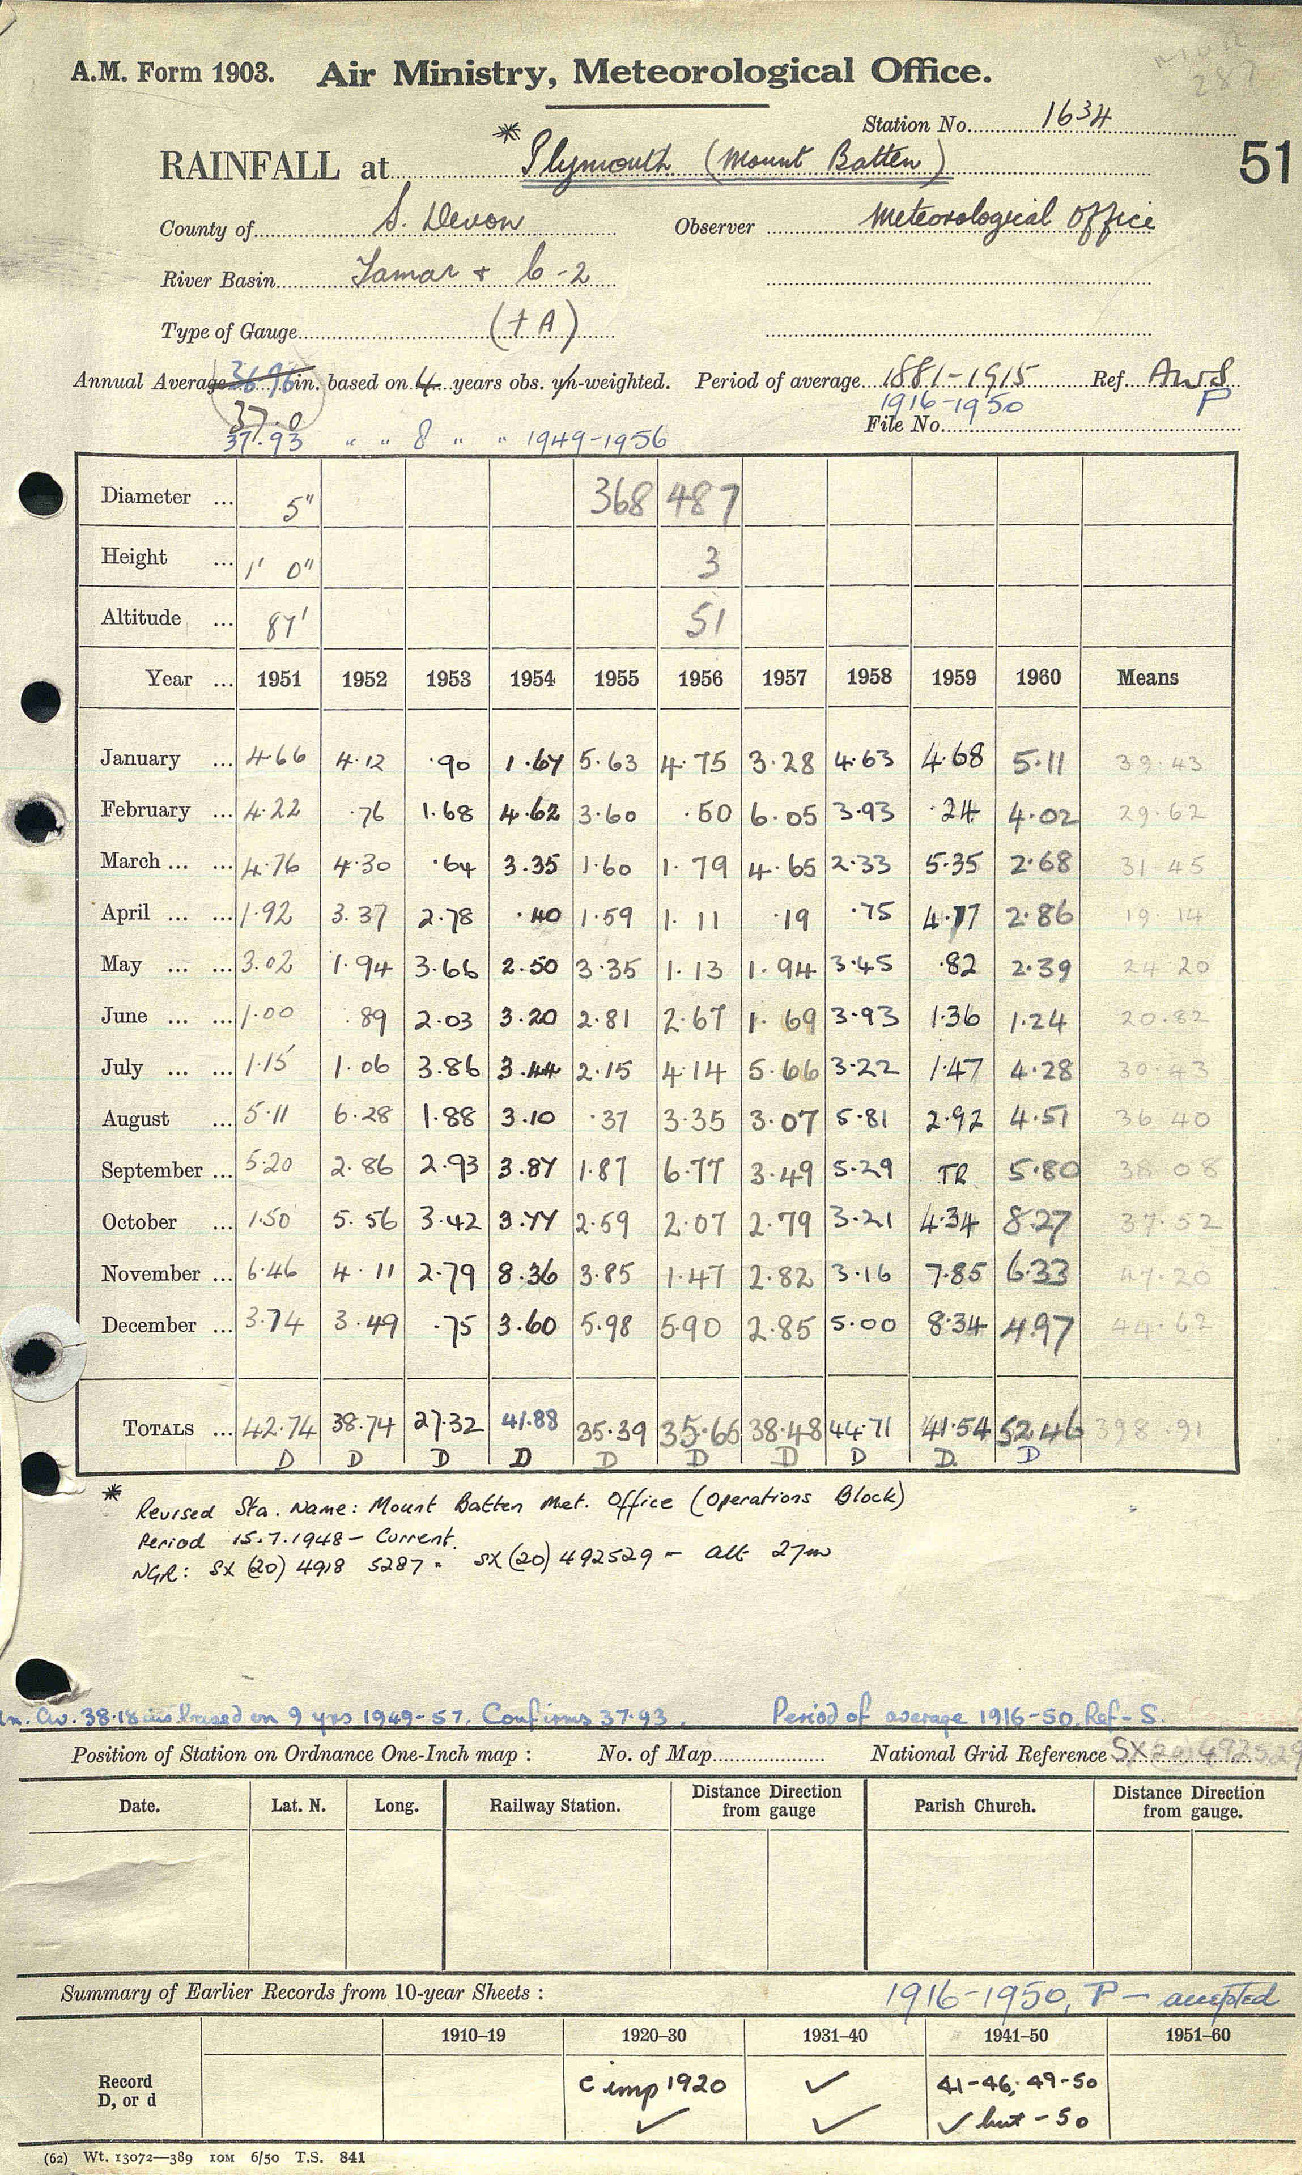 A.M. Form 1903. Air Ministry, Meteorological Office.
Station No. 1634
* RAINFALL at Plymouth (Mount Batten)
51
County of S. Devon Observer Meteorological Office
River Basin Tamar + C-2
Type of Gauge (+A)
Annual Average 36.96 in. based on 4 years obs. un-weighted. Period of average 1881-1915 Ref. AWS
37.0 1916-1950 P
File No.
37.93 " " 8 " " 1949-1956
Diameter ... 5" 368 487
Height ... 1' 0" 3
Altitude ... 87' 51
Year ... 1951 1952 1953 1954 1955 1956 1957 1958 1959 1960 Means
January ... 4.66 4.12 .90 1.64 5.63 4.75 3.28 4.63 4.68 5.11 39.43
February ... 4.22 .76 1.68 4.62 3.60 .50 6.05 3.93 .24 4.02 29.62
March ... ... 4.76 4.30 .64 3.35 1.60 1.79 4.65 2.33 5.35 2.68 31.45
April ... ... 1.92 3.37 2.78 .40 1.59 1.11 .19 .75 4.17 2.86 19.14
May ... ... 3.02 1.94 3.66 2.50 3.35 1.13 1.94 3.45 .82 2.39 24.20
June ... ... 1.00 .89 2.03 3.20 2.81 2.67 1.69 3.93 1.36 1.24 20.82
July ... ... 1.15 1.06 3.86 3.44 2.15 4.14 5.66 3.22 1.47 4.28 30.43
August ... 5.11 6.28 1.88 3.10 .37 3.35 3.07 5.81 2.92 4.51 36.40
September ... 5.20 2.86 2.93 3.87 1.87 6.77 3.49 5.29 TR 5.80 38.08
October ... 1.50 5.56 3.42 3.77 2.59 2.07 2.79 3.21 4.34 8.27 37.52
November ... 6.46 4.11 2.79 8.36 3.85 1.47 2.82 3.16 7.85 6.33 47.20
December ... 3.74 3.49 .75 3.60 5.98 5.90 2.85 5.00 8.34 4.97 44.62
TOTALS ... 42.74 38.74 27.32 41.88 35.39 35.65 38.48 44.71 41.54 52.46 398.91
D D D D D D D D D. D
* Revised Sta. Name: Mount Batten Met. Office (Operations Block)
Period 15.7.1948 – Current.
NGR: SX (20) 4918 5287 = SX (20) 492529 – alt 27m
An. Av. 38.18 ins based on 9 yrs 1949-57. Confirms 37.93. Period of average 1916-50. Ref - S.
Position of Station on Ordnance One-Inch map : No. of Map National Grid Reference SX 20/492529
Date. Lat. N. Long. Railway Station. Distance Direction from gauge Parish Church. Distance Direction from gauge.
Summary of Earlier Records from 10-year Sheets : 1916-1950, P – accepted
1910–19 1920–30 1931–40 1941–50 1951–60
Record C imp 1920 ✓ 41-46, 49-50
D, or d ✓ ✓ ✓ but - 50
(62) Wt. 13072—389 10M 6/50 T.S. 841